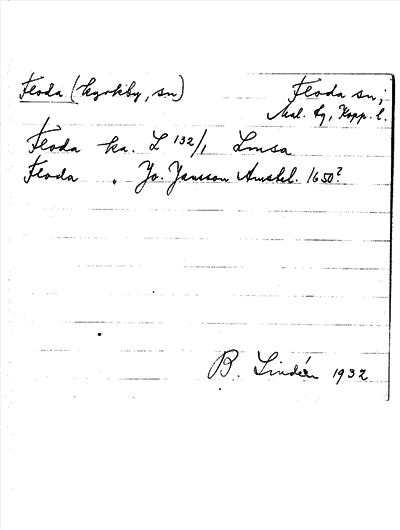 Floda (kyrkby, sn) Floda sn;
Nal. tg, Kopp. l.
Floda ka. L 132/1 Lmsa
Floda " Jo. Jansson Amstel. 1650?
B. Lindén 1932